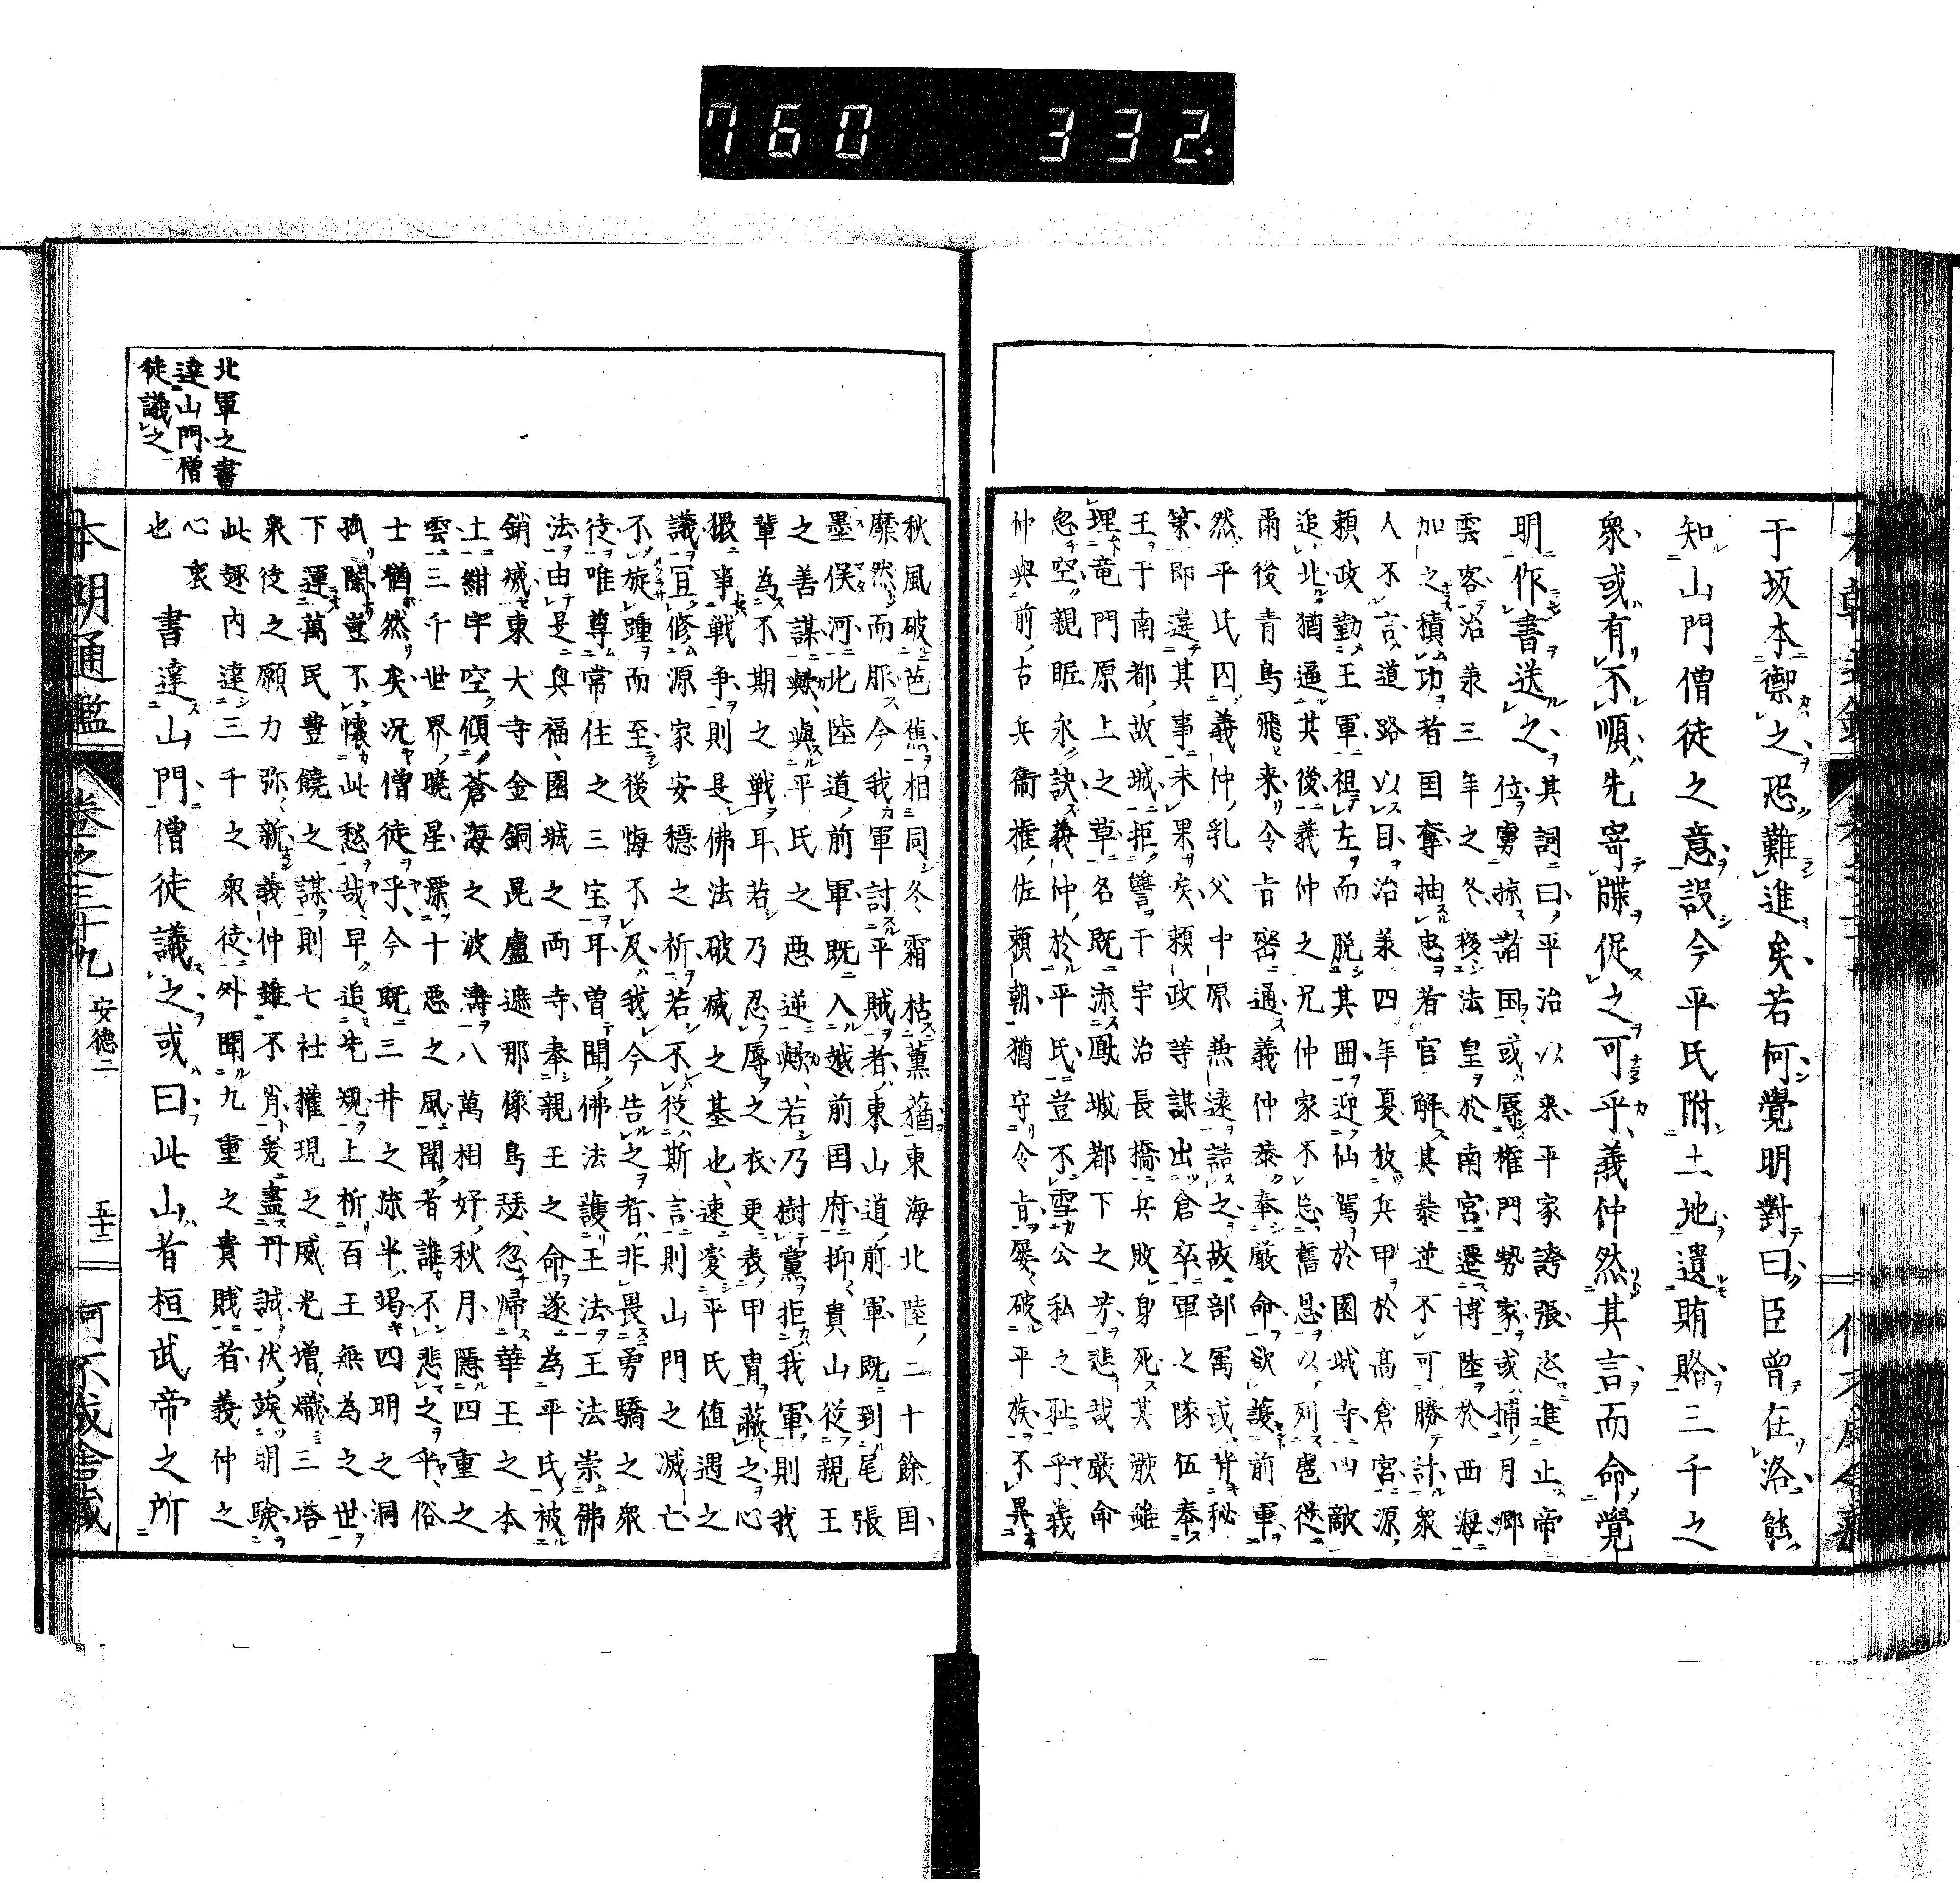 760 332.
于坂本禦之恐難進矣若何覺明對曰臣曾在洛能
知山門僧徒之意設今平氏附土地遺賄賂三千之
衆或有不順先寄牒促之可乎義仲然其言而命覺
明作書送之其詞曰平治以来平家誇張迯進止帝
位虜掠諸国或辱権門勢家或捕月卿
雲客治承三年之冬移法皇於南宮遷博陸於西海
加之積功者国奪抽忠者官解其暴逆不可勝計衆
人不言道路以目治承四年夏放兵甲於高倉宮源
頼政勤王軍祖左而脱其囲迎仙駕於園城寺而敵
追北猶逼其後義仲之兄仲家不忘舊恩以列扈従
爾後青鳥飛来令旨密通義仲恭奉厳命欲護前軍
然平氏囚義仲乳父中原兼遠詰之故部属或背秘
策即達其事未果矣頼政等謀出倉卒軍之隊伍奉
王于南都故城拒讐于宇治長橋兵敗身死其敵雖
埋竜門原上之草名既流鳳城都下之芳悲哉厳命
忽空親眤永訣義仲於平氏豈不雪公私之恥乎義
仲與前右兵衞権佐頼朝猶守令旨屡破平族不異
秋風破芭蕉相同冬霜枯薫蕕東海北陸二十餘国
靡然而服今我軍討平賊者東山道前軍既到尾張
墨俣河北陸道前軍既入越前国府抑貴山従親王
之善謀歟與平氏之悪逆歟若乃樹黨拒我軍則我
輩為不期之戦耳若乃忍辱之衣更表甲冑蔽之心
猥事戦争則是佛法破滅之基也速変平氏値遇之
議宜修源家安穏之祈若不従斯言則山門之滅亡
不旋踵而至後悔不及我今告之者非畏勇驕之衆
徒唯尊常住之三宝耳曽聞佛法護王法王法崇佛
法由是興福園城之両寺奉親王之命遂為平氏被
銷滅東大寺金銅毘盧遮那像烏瑟忽帰華王之本
土紺宇空傾蒼海之波濤八萬相好秋月隠四重之
雲三千世界曉星漂十悪之風聞者誰不悲之乎俗
士猶然矣况僧徒乎今既三井之流半竭四明之洞
孤閑豈不懐此愁哉早追先規上祈百王無為之世
下運萬民豊饒之謀則七社権現之威光増熾三塔
衆徒之願力弥新義仲雖不肖爰盡丹誠伏竢明験
此趣内達三千之衆徒外聞九重之貴賎者義仲之
心衷
也
書達山門僧徒議之或曰此山者桓武帝之所
北軍之書
達山門僧
徒議之
本朝通鑑
卷之三十九
安徳二
五十二